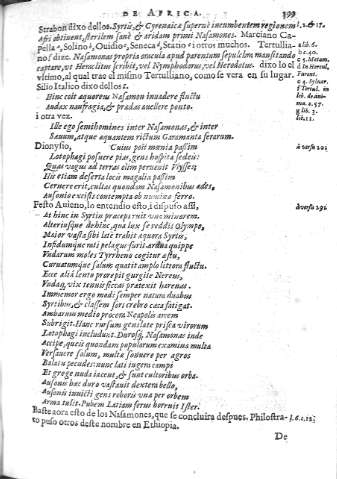 DE AFRICA. 399
Strabon dixo dellos. Syrtis, & Cyrenaicæ superne incumbentem regionem
Asij obtinent, sterilem sane & aridam primi Nasamones. Marciano Ca-
pella, Solino, Ouidio, Seneca, Stacio i otros muchos. Tertullia-
no dize. Nasamonas propria oracula apud parentum sepulchra mansitando
captare, vt Heraclitus scribit, vel Nymphodorus, vel Herodotus. dixolo el
vlsimo, al qual tras el mismo Tertulliano, como se vera en su lugar.
Silio Italico dixo dellos
Hinc coit aquoreus Nasamon inuadere fluctu
Audax naufragia, & pradas auellere ponto.
i otra vez.
Ille ego semihomines inter Nasamonas, & inter
Sauum, atque aquantem rictum Garamanta ferarum.
Dionysio, Cuius post mœnia pastim
Lotophagi posuere pias, gens hospita sedes:
Qua vagus ad terras olim peruenit Vlysses:
Hic etiam deserta locis magalia pastim
Cernere erit, cultas quondam Nasamonibus ades,
Ausonio exstitit contempta ob numina ferro.
Festo Auieno, lo entendio esto, i dispuso assi,
At hinc in Syrtim praceps ruit
Alteriusque dehinc, qua lux se reddit Olympo,
Maior vasta sibi late trahit aquora Syrtis,
Infidumque rati pelagus furit. arctus quippe
Vndarum moles Tyrrheno cogitur astu,
Curuatumque salum quatit amplo litora fluctu.
Ecce alia lento prorepit gurgite Nereus,
Vadaq, vix tennis siccas pratexit harenas.
Immemor ergo modi semper natura duabus
Syrtibus, & classem fors crebro cæca fatigat.
Ambarum medio procera Neapolis arcem
Subrigit. Hanc rursum gens late prisca virorum
Lotophagi includunt. Durosq, Nasamonas inde
Accipe, queis quondam popularum examina multa
Versauere solum, multa sonuere per agros
Balatu pecudes: nunc lati iugera campi
Et grege nuda iacent, & sunt cultoribus orba.
Ausonis hac duro vastauit dextera bello,
Ausonis inuicti gens roboris vna per orbem
Arma tulit. Pubem Latiam ferus horruit Ister.
Baste aora esto de los Nasamones, que se concluira despues. Philostra-
to puso otros deste nombre en Ethiopia.
De
à versu 203
à versu 291.
l.6.c.12;